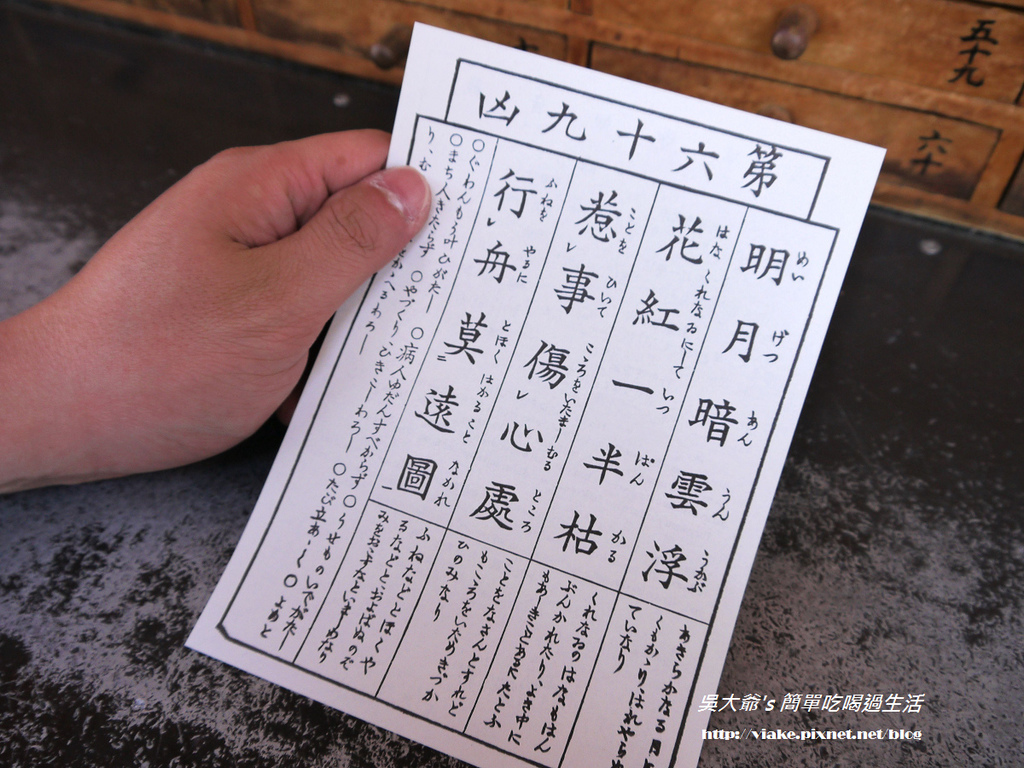 五十九
六十
第六十九凶
明月暗雲浮
めい げつ あん うん うかぶ
花紅一半枯
はな くれなゐにして いつ はん かる
惹レ事傷レ心處
ことを ひいて こころをいたましむる ところ
行レ舟莫遠圖
ふねを やるに とほく はかること なかれ
あきらかなる月
くもかゝりはれやら
ていなり
くれなゐのはなもはん
ぶんかれたり、よき中に
もあしきことあるにたとふ
ことをなさんとすれど
もこころをいためきづか
ひのみたり
ふねなどとほくや
るなどとおよばぬのぞ
みをおこすないましめなり
〇ぐわんもう叶ひがたし
〇病人ゆだんすべからず
〇うせものいでがたし
〇まち人きたらず
〇やづくりひむきこしわろし
〇たび立あしし
〇よめと
り、む
吳大爺's 簡單吃喝過生活
http://viake.pixnet.net/blog